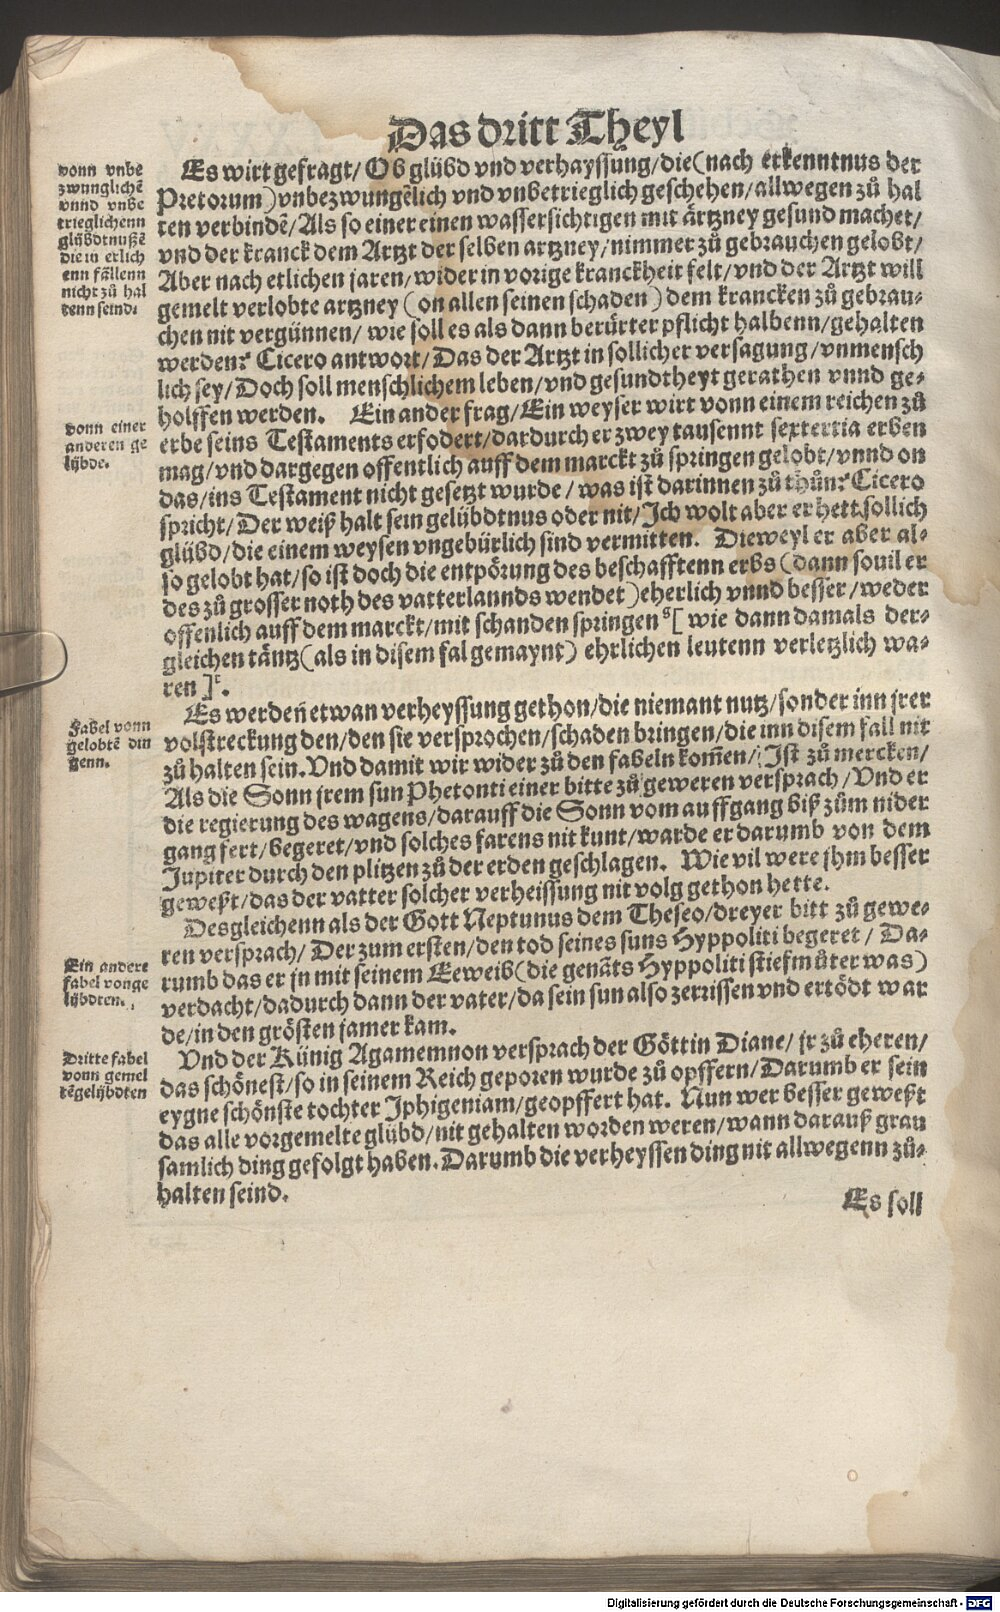 Das dritt Theyl
vonn vnbe
zwunglichē
vnnd vnbe
trieglichenn
glübdtnußē
die in etlich
enn fällenn
nicht zů hal
tenn seind.
Es wirt gefragt/ Ob glübd vnd verhayssung/die(nach erkenntnus der
Pretorum)vnbezwungēlich vnd vnbetrieglich geschehen/allwegen zů hal
ten verbindē/Als so einer einen wassersichtigen mit ärtzney gesund machet/
vnd der kranck dem Artzt der selben artzney/nimmer zů gebrauchen gelobt/
Aber nach etlichen jaren/wider in vorige kranckheit felt/vnd der Artzt will
gemelt verlobte artzney(on allen seinen schaden)dem krancken zů gebrau⸗
chen nit vergünnen/ wie soll es als dann berürter pflicht halbenn/gehalten
werden? Cicero antwort/Das der Artzt in sollicher versagung/vnmensch
lich sey/Doch soll menschlichem leben/vnd gesundtheyt gerathen vnnd ge⸗
holffen werden. Ein ander frag/Ein weyser wirt vonn einem reichen zů
vonn einer
anderen ge
lübde.
erbe seins Testaments erfodert/dardurch er zwey tausennt sextertia erben
mag/vnd dargegen offentlich auff dem marckt zů springen gelobt/vnnd on
das/ins Testament nicht gesetzt wurde/was ist darinnen zů thůn? Cicero
spricht/Der weiß halt sein gelübdtnus oder nit/Ich wolt aber er hett sollich
glübd/die einem weysen vngebürlich sind vermitten. Dieweyl er aber al⸗
so gelobt hat/so ist doch die entpörung des beschafftenn erbs(dann souil er
des zů grosser noth des vatterlannds wendet)eherlich vnnd besser/weder
offenlich auff dem marckt/mit schanden springen ᵍ[ wie dann damals der⸗
gleichen täntz(als in disem fal gemaynt) ehrlichen leutenn verletzlich wa⸗
ren ]ᵗ.
Es werdeñ etwan verheyssung gethon/die niemant nutz/sonder inn jrer
Fabel vonn
gelobtē din
genn.
volstreckung den/den sie versprochen/schaden bringen/die inn disem fall nit
zů halten sein. Vnd damit wir wider zů den fabeln kom̄en/Ist zů mercken/
Als die Sonn jrem sun Phetonti einer bitte zů geweren versprach/Vnd er
die regierung des wagens/darauff die Sonn vom auffgang biß zům nider
gang fert/begeret/vnd solches farens nit kunt/warde er darumb von dem
Jupiter durch den plitzen zů der erden geschlagen. Wie vil were jhm besser
geweßt/das der vatter solcher verheissung nit volg gethon hette.
Desgleichenn als der Gott Neptunus dem Theseo/dreyer bitt zů gewe⸗
ren versprach/Der zum ersten/den tod seines suns Hyppoliti begeret/ Da⸗
Ein andere
fabel vonge
lübdten.
rumb das er jn mit seinem Eeweib(die genāts Hyppoliti stiefmůter was)
verdacht/dadurch dann der vater/da sein sun also zerrissen vnd ertödt war
de/in den grösten jamer kam.
Vnd der Künig Agamemnon versprach der Göttin Diane/ jr zů eheren/
Dritte fabel
vonn gemel
tēgelübdten
das schönest/so in seinem Reich geporen wurde zů opffern/Darumb er sein
eygne schönste tochter Iphigeniam/geopffert hat. Nun wer besser geweßt
das alle vorgemelte glübd/nit gehalten worden weren/wann darauß grau
samlich ding gefolgt haben. Darumb die verheyssen ding nit allwegenn zů⸗
halten seind.
Es soll
Digitalisierung gefördert durch die Deutsche Forschungsgemeinschaft - DFG